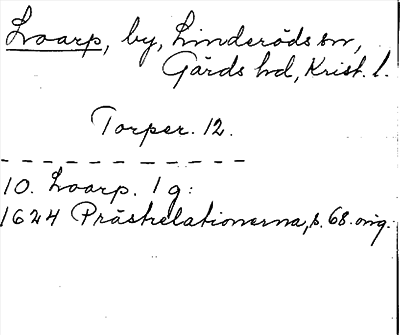 Loarp, by, Linderöds sn,
Gärds hd, Krist. l.
Torper. 12.
10. Loarp. 1 g:
1624 Prästrelationerna, s. 68. orig.